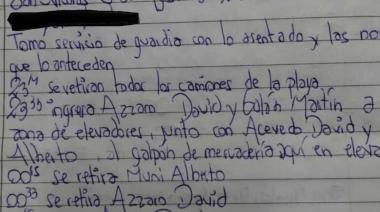 Tomo servicio de guardia con lo asentado y las no
que lo anteceden
23¹⁴ se retiran todos los camiones de la playa
23³⁹ ingresa Azzaro David y Galán Martín a
zona de elevadores, junto con Acevedo David y
Alberto, al galpón de mercadería aquí en eleva
00¹⁵ se retira Muni Alberto
00³³ se retira Azzaro David